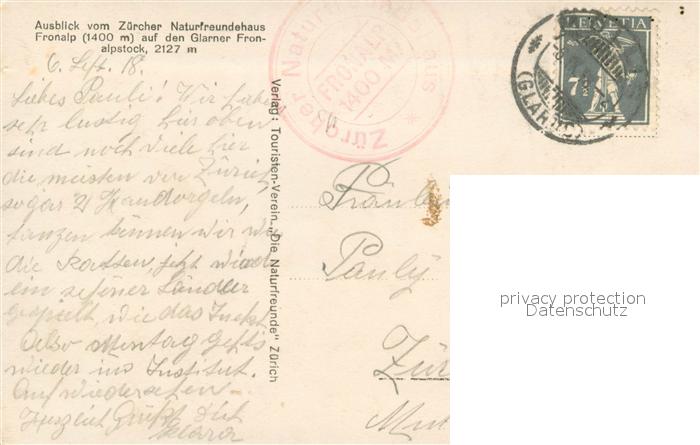 Ausblick vom Zürcher Naturfreundehaus
Fronalp (1400 m) auf den Glarner Fron-
alpstock, 2127 m
6. Sept. 18.
Liebes Pauli! Wir haben
sehr lustig hier oben
sind noch viele hier
die meisten von Zürich,
sogar 2 Handorgeln,
tanzen können wir wie
die Ratten, jetzt wird
ein schöner Ländler
gespielt, wie das
Also Montag gehts
wieder ins Institut.
Auf wiedersehen
Herzlich Grüßt Dich
Klara
Verlag: Touristen-Verein „Die Naturfreunde" Zürich
Zürcher Naturfreundehaus
FRONALP
1400 M.
HELVETIA
7½
(GLARUS)
Fräulein
Pauly
Zür
privacy protection
Datenschutz